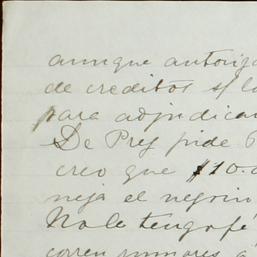 aunque autoriza
de creditos s/ la
para adjudicar
De Prey pide
creo que $10.0
neja el negocio
No le tengo fé
corren rumores a